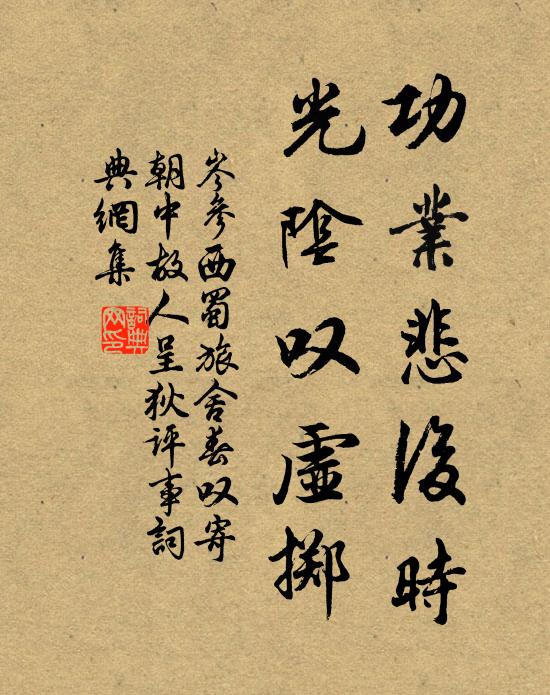 功業悲後時
光陰叹虛掷
岑參西蜀旅舍春叹寄
朝中故人呈狄评事詞
典網集
詞典网印